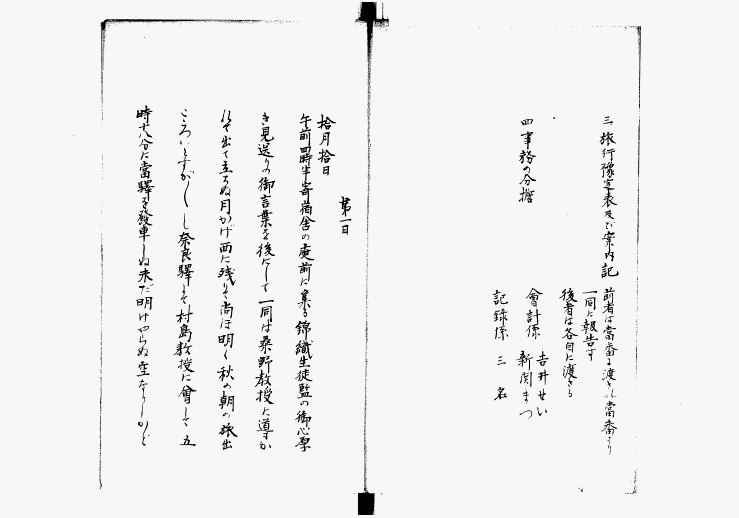 三 旅行豫定表及び案内記
前者は當番に渡され當番より
一同に報告す
後者は各自に渡さる
四 事務の分擔
會計係 吉井せい
新関まつ
記録係 三名
第一日
拾月拾日
午前四時半寄宿舎の庭前に集る錦織生徒監の御心厚
き見送りの御言葉を後にして一同は桑野教授に導か
れて出で立ちぬ月かげ西に残りて尚ほ明く秋の朝の旅出
こゝろいとすが〱し奈良驛にて村島教授に會して五
時十八分に當驛を發車しぬ未だ明けやらぬ空なりしかど